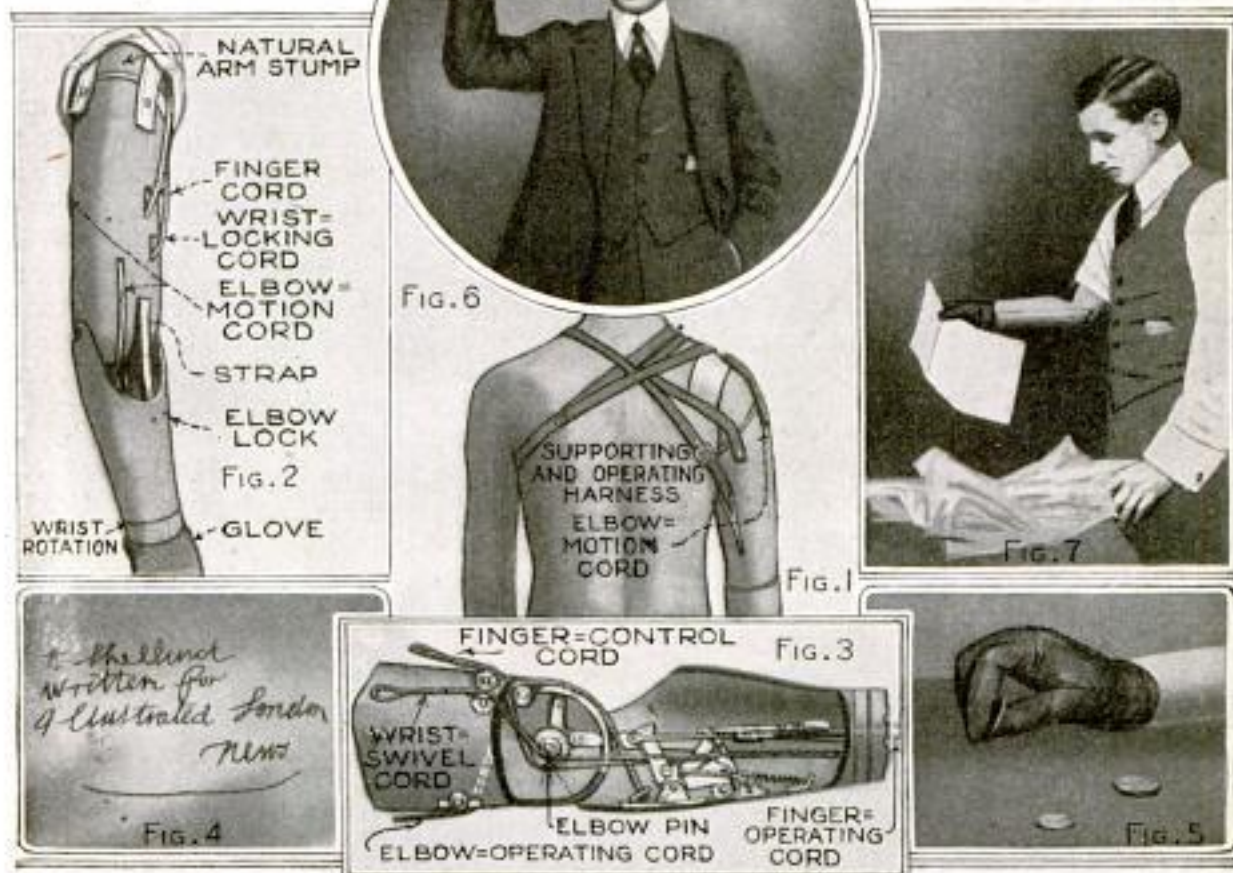 NATURAL
ARM STUMP
FINGER
CORD
WRIST=
LOCKING
CORD
ELBOW=
MOTION
CORD
STRAP
ELBOW
LOCK
FIG. 2
WRIST
ROTATION
GLOVE
FIG. 6
SUPPORTING
AND OPERATING
HARNESS
ELBOW=
MOTION
CORD
FIG. 1
FIG. 7
written for
Illustrated London
News
FIG. 4
FINGER=CONTROL
CORD
FIG. 3
WRIST=
SWIVEL
CORD
ELBOW PIN
ELBOW=OPERATING CORD
FINGER=
OPERATING
CORD
FIG. 5